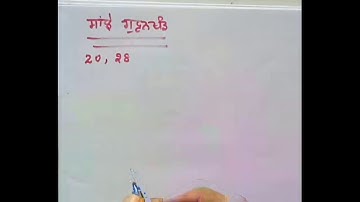 ਸਾਂਝੇ ਗੁਣਨਖੰਡ
20, 28